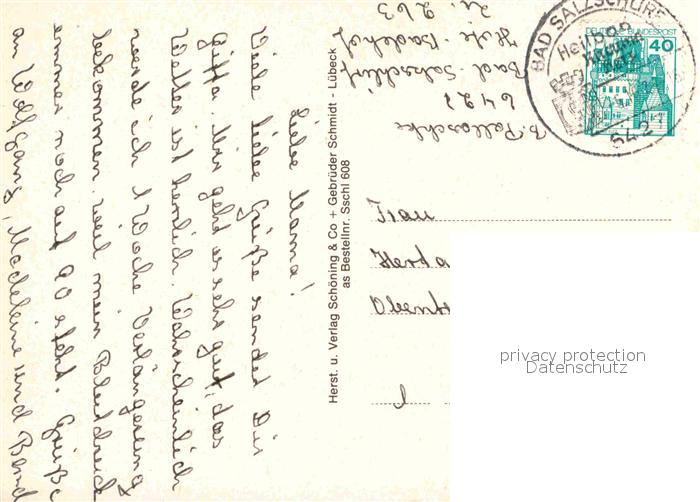 Liebe Mama!
Viele liebe Grüße sendet Dir
Gitta. Mir geht es sehr gut, das
Wetter ist herrlich. Wahrscheinlich
werde ich 1 Woche Verlängerung
bekommen, weil mein Blutdruck
immer noch auf 90 steht. Grüße
an Wolfgang, Madeleine und Bernd
Herst. u. Verlag Schöning & Co + Gebrüder Schmidt · Lübeck
as Bestellnr. Sschl 608
6427
Bad Salzschlirf
Badehof
Zi. 263
BAD SALZSCHLIRF
Heilbad
642
DEUTSCHE BUNDESPOST
40
Frau
Herta
privacy protection
Datenschutz